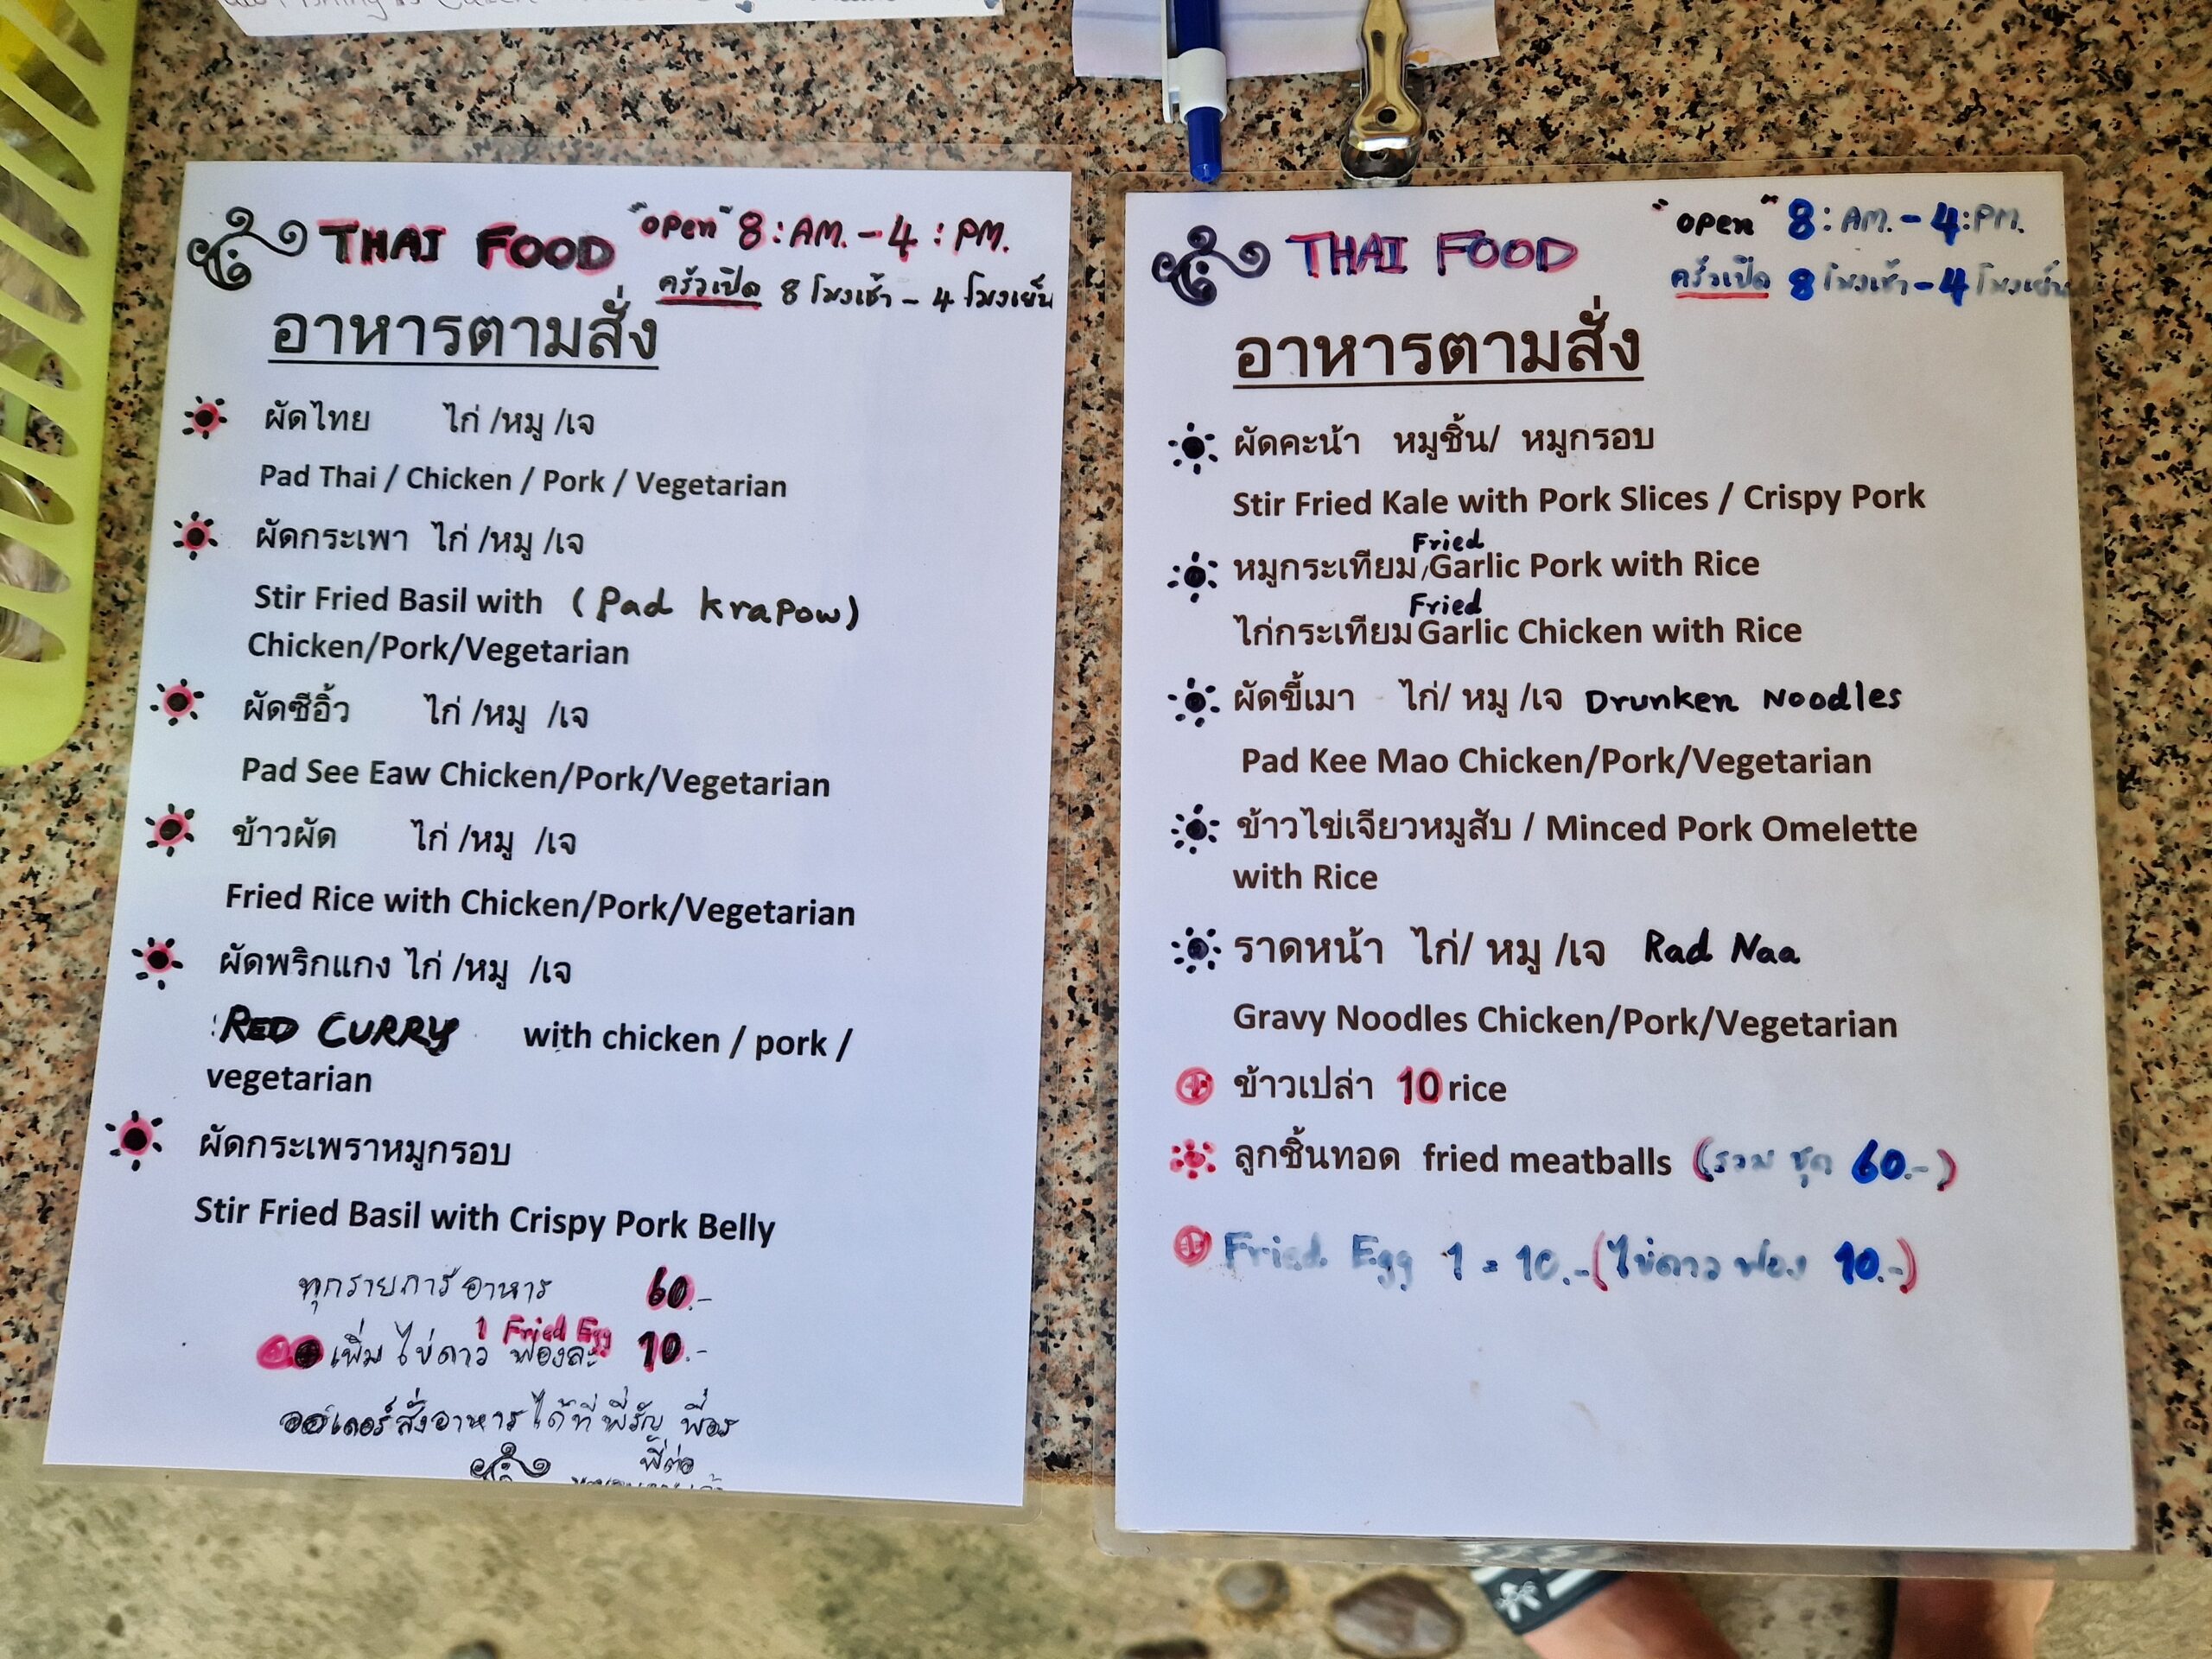 THAI FOOD "open" 8: AM. - 4: PM.
ครัวเปิด 8 โมงเช้า - 4 โมงเย็น
อาหารตามสั่ง
ผัดไทย ไก่ /หมู /เจ
Pad Thai / Chicken / Pork / Vegetarian
ผัดกระเพา ไก่ /หมู /เจ
Stir Fried Basil with (Pad krapow)
Chicken/Pork/Vegetarian
ผัดซีอิ้ว ไก่ /หมู /เจ
Pad See Eaw Chicken/Pork/Vegetarian
ข้าวผัด ไก่ /หมู /เจ
Fried Rice with Chicken/Pork/Vegetarian
ผัดพริกแกง ไก่ /หมู /เจ
RED CURRY with chicken / pork /
vegetarian
ผัดกระเพราหมูกรอบ
Stir Fried Basil with Crispy Pork Belly
ทุกรายการอาหาร 60.-
1 Fried Egg
เพิ่มไข่ดาว ฟองละ 10.-
ออเดอร์สั่งอาหารได้ที่ พี่รัญ พี่อร
พี่ต่อ
THAI FOOD "open" 8: AM. - 4: PM.
ครัวเปิด 8 โมงเช้า - 4 โมงเย็น
อาหารตามสั่ง
ผัดคะน้า หมูชิ้น/ หมูกรอบ
Stir Fried Kale with Pork Slices / Crispy Pork
Fried
หมูกระเทียม/Garlic Pork with Rice
Fried
ไก่กระเทียม Garlic Chicken with Rice
ผัดขี้เมา ไก่/ หมู /เจ Drunken Noodles
Pad Kee Mao Chicken/Pork/Vegetarian
ข้าวไข่เจียวหมูสับ / Minced Pork Omelette
with Rice
ราดหน้า ไก่/ หมู /เจ Rad Naa
Gravy Noodles Chicken/Pork/Vegetarian
ข้าวเปล่า 10 rice
ลูกชิ้นทอด fried meatballs (รวม ชุด 60.-)
Fried Egg 1 = 10.- (ไข่ดาว ฟอง 10.-)